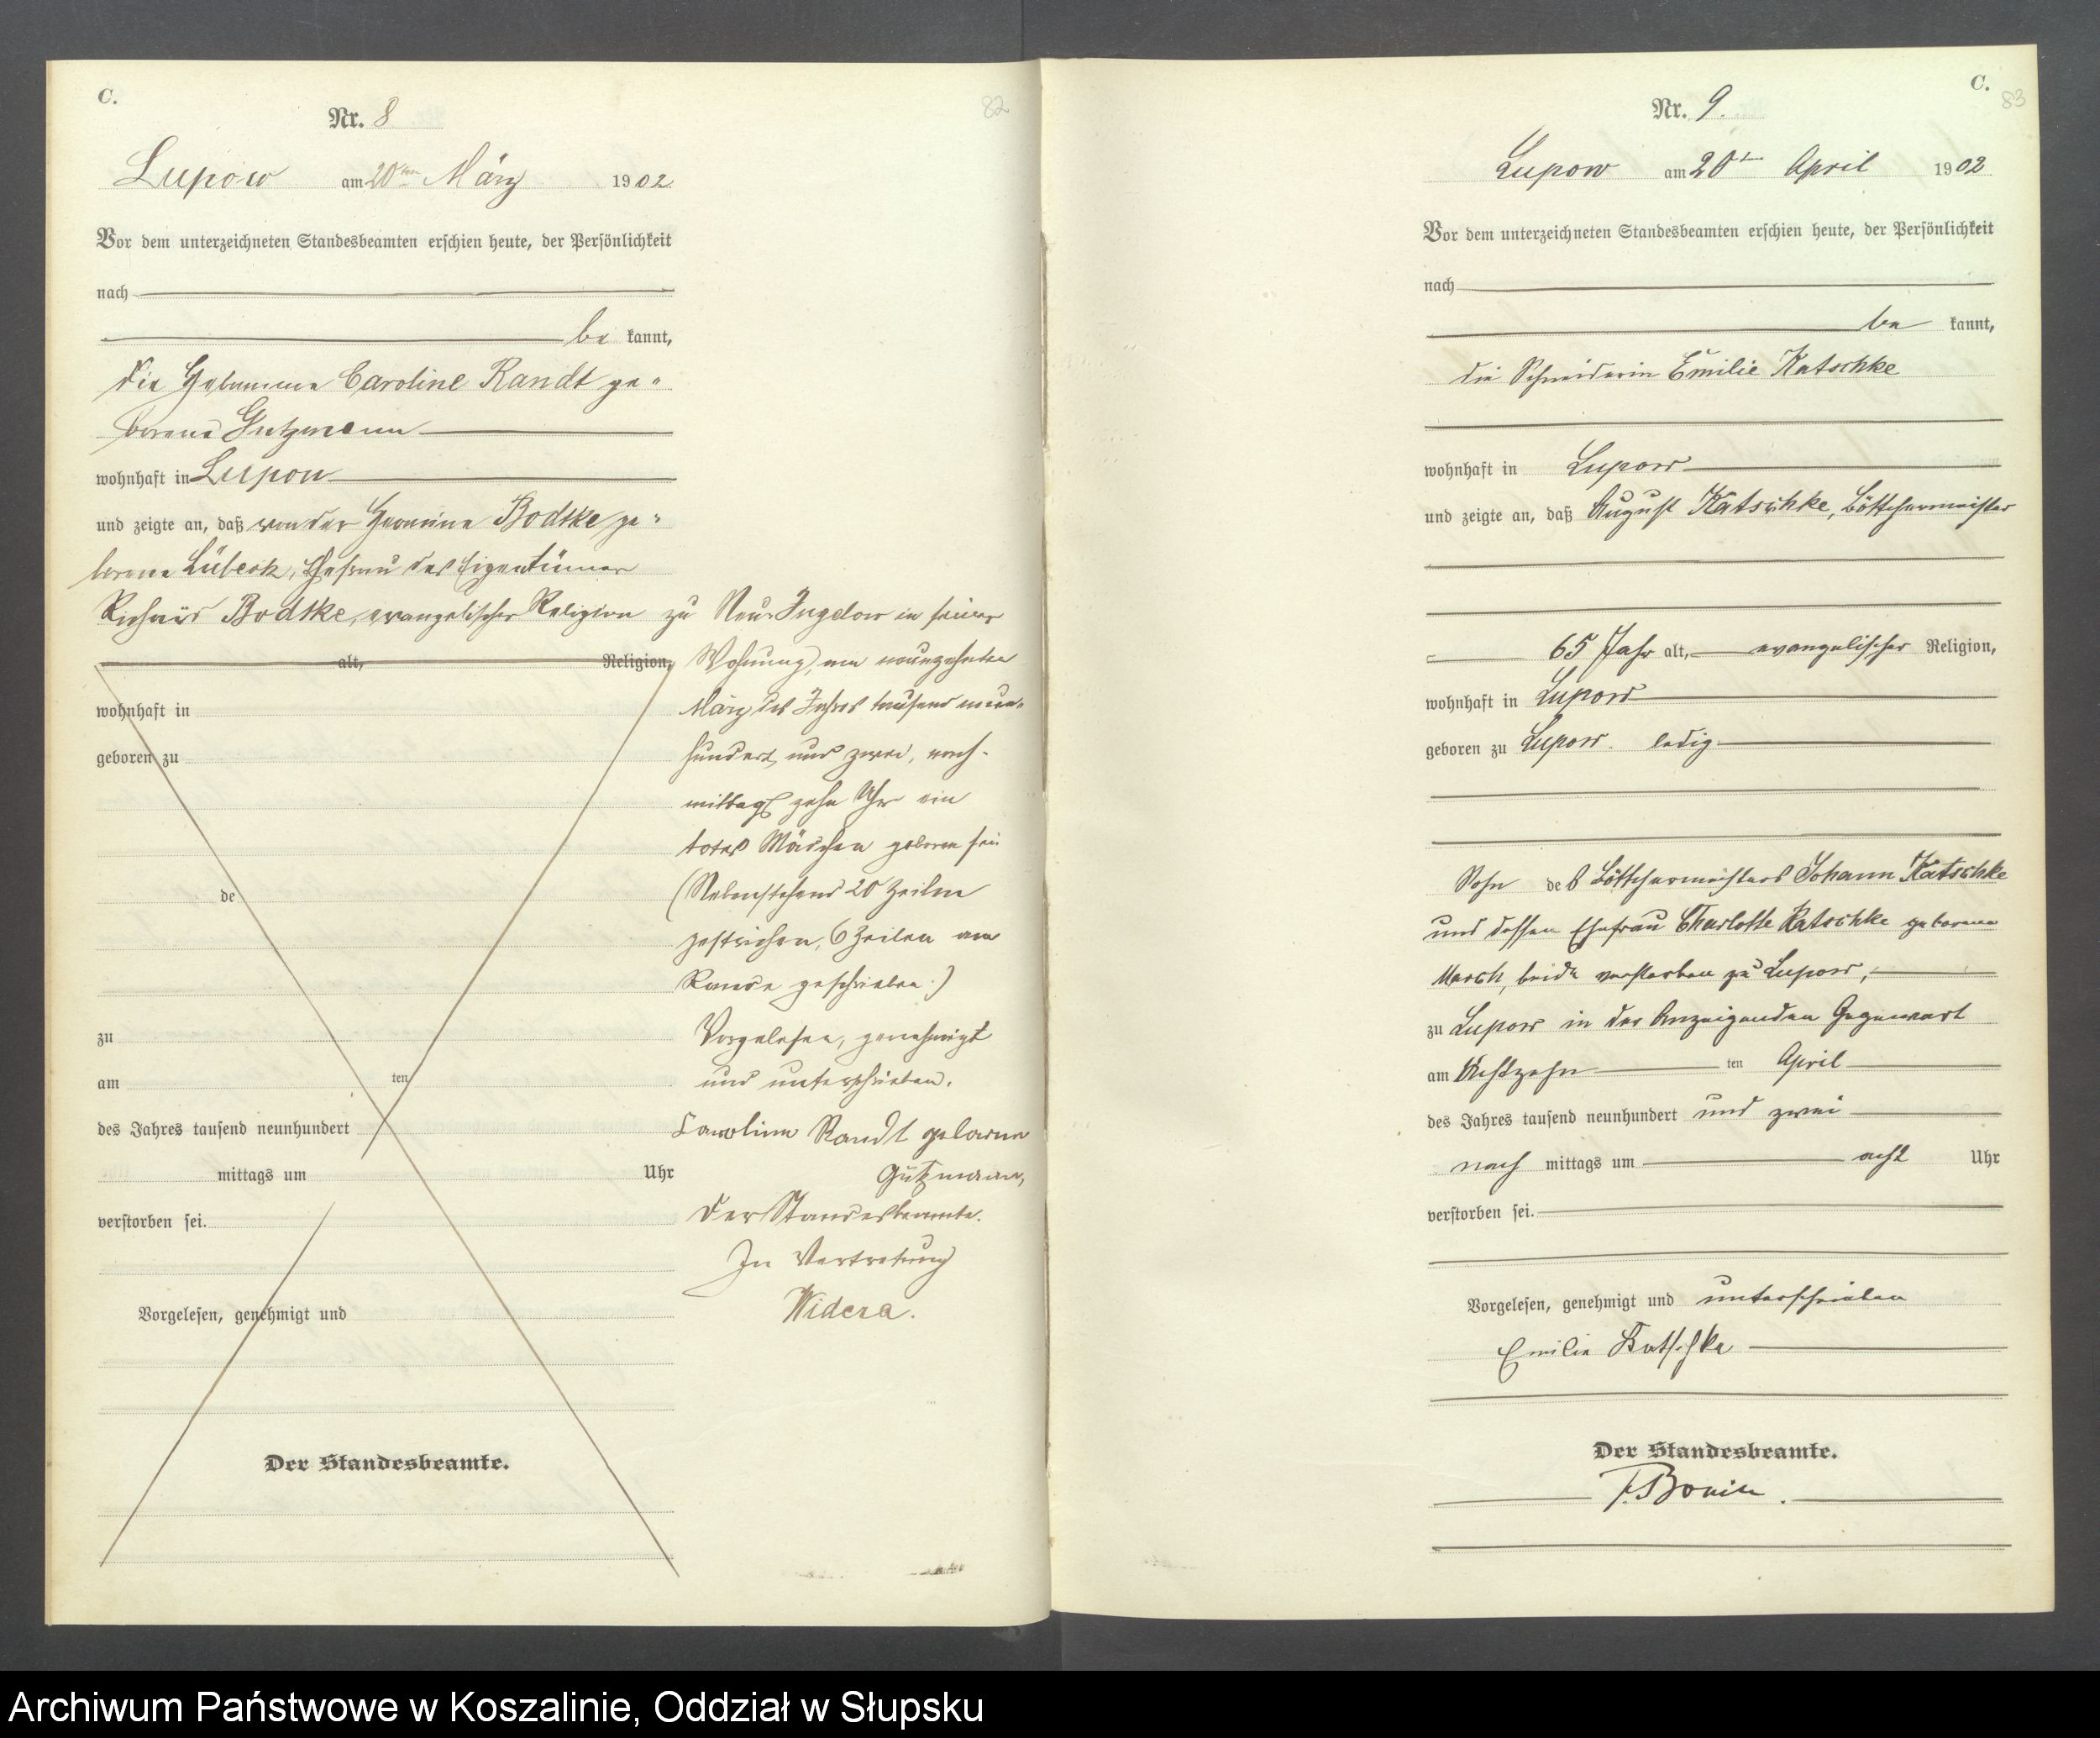 C.
82
Nr. 8
Lupow am 20ten März 1902
Vor dem unterzeichneten Standesbeamten erschien heute, der Persönlichkeit
nach
be kannt,
die Hebamme Caroline Randt ge-
borene Gutzmann
wohnhaft in Lupow
und zeigte an, daß von der Hermine Bodtke ge-
borene Lübeck, Ehefrau des Eigentümer
Richard Bodtke, evangelischer Religion zu Neu-Jugelow in seiner
alt, Religion,
wohnhaft in
geboren zu
de
zu
am ten
des Jahres tausend neunhundert
mittags um Uhr
verstorben sei.
Vorgelesen, genehmigt und
Der Standesbeamte.
Wohnung, am neunzehnten
März des Jahres tausend neun-
hundert und zwei, nach-
mittags zehn Uhr ein
totes Mädchen geboren sei
(Nebenstehend 20 Zeilen
gestrichen, 6 Zeilen am
Rande geschrieben.)
Vorgelesen, genehmigt
und unterschrieben.
Caroline Randt geborene
Gutzmann,
Der Standesbeamte.
In Vertretung
Widera.
C.
83
Nr. 9.
Lupow am 20ten April 1902
Vor dem unterzeichneten Standesbeamten erschien heute, der Persönlichkeit
nach
be kannt,
die Schneiderin Emilie Katschke
wohnhaft in Lupow
und zeigte an, daß August Katschke, Böttchermeister
65 Jahr alt, evangelischer Religion,
wohnhaft in Lupow
geboren zu Lupow. ledig
Sohn des Böttchermeisters Johann Katschke
und dessen Ehefrau Charlotte Katschke geborene
beide verstorben zu Lupow,
zu Lupow in der Anzeigenden Gegenwart
am Achtzehn ten April
des Jahres tausend neunhundert und zwei
nach mittags um acht Uhr
verstorben sei.
Vorgelesen, genehmigt und unterschrieben
Emilie Katschke
Der Standesbeamte.
Bonin.
Archiwum Państwowe w Koszalinie, Oddział w Słupsku